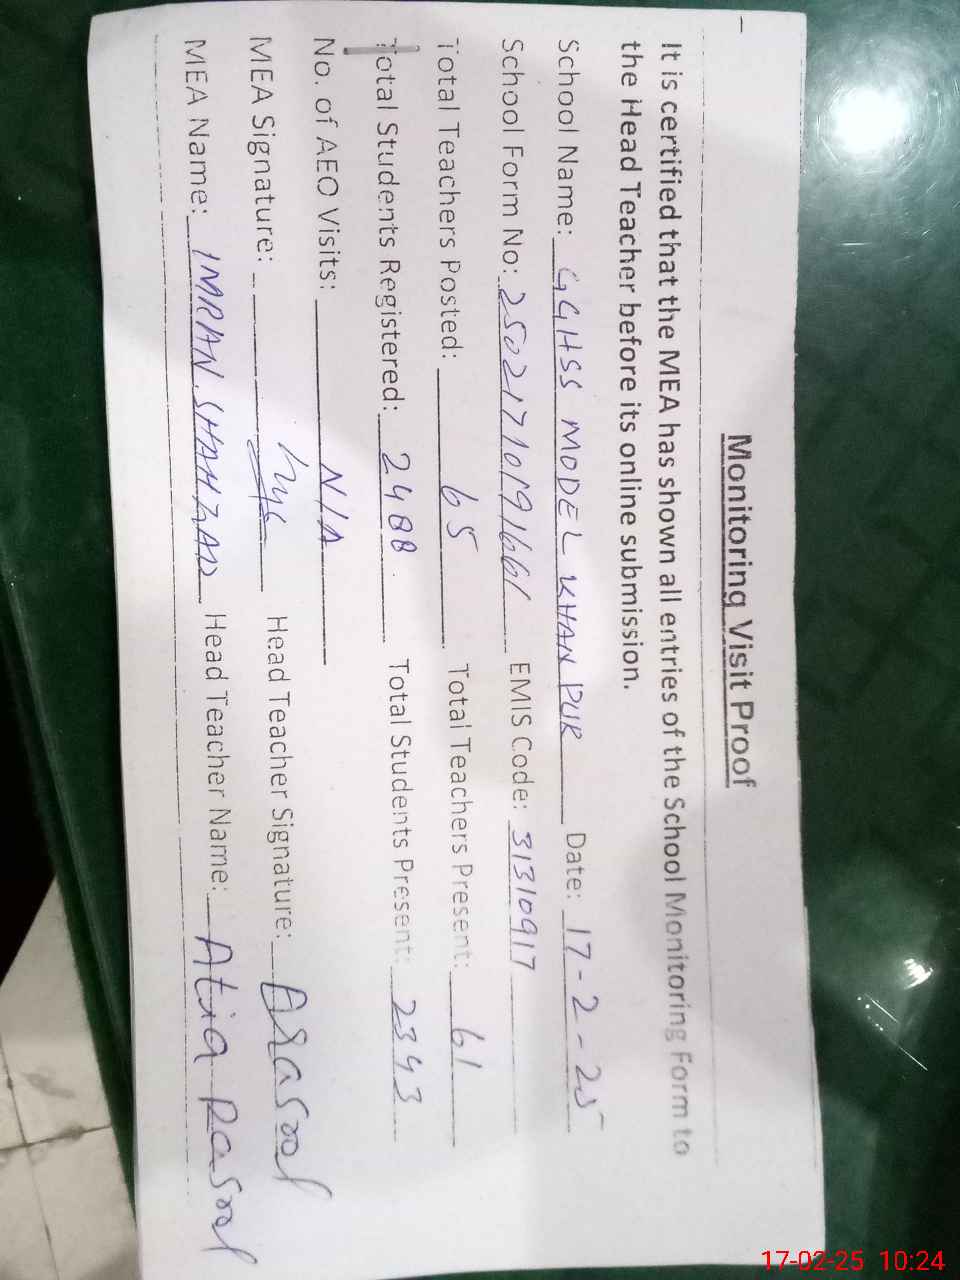 Monitoring Visit Proof
It is certified that the MEA has shown all entries of the School Monitoring Form to
the Head Teacher before its online submission.
School Name: GGHSS MODEL KHAN PUR Date: 17-2-25
School Form No: 25021710191661 EMIS Code: 31310917
Total Teachers Posted: 65 Total Teachers Present: 61
Total Students Registered: 2488 Total Students Present: 2343
No. of AEO Visits: N/A
MEA Signature: Head Teacher Signature: ARasool
MEA Name: IMRAN SHAHZAD Head Teacher Name: Atiq Rasool
17-02-25 10:24